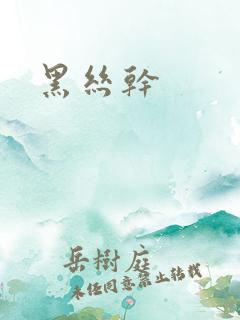 黑丝幹
岳樹庭
未经同意禁止转载